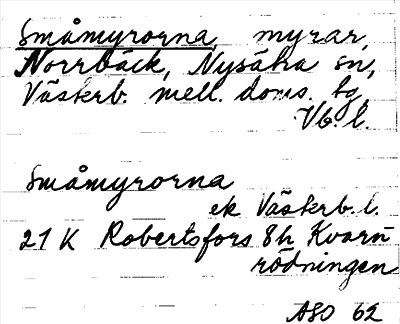 Småmyrorna, myrar,
Norrbäck, Nysätra sn,
Västerb. mell. doms. tg,
Vb. l.
Småmyrorna
ek Västerb. l.
21 K Robertsfors 8h Kvarn
rödningen
ASO 62